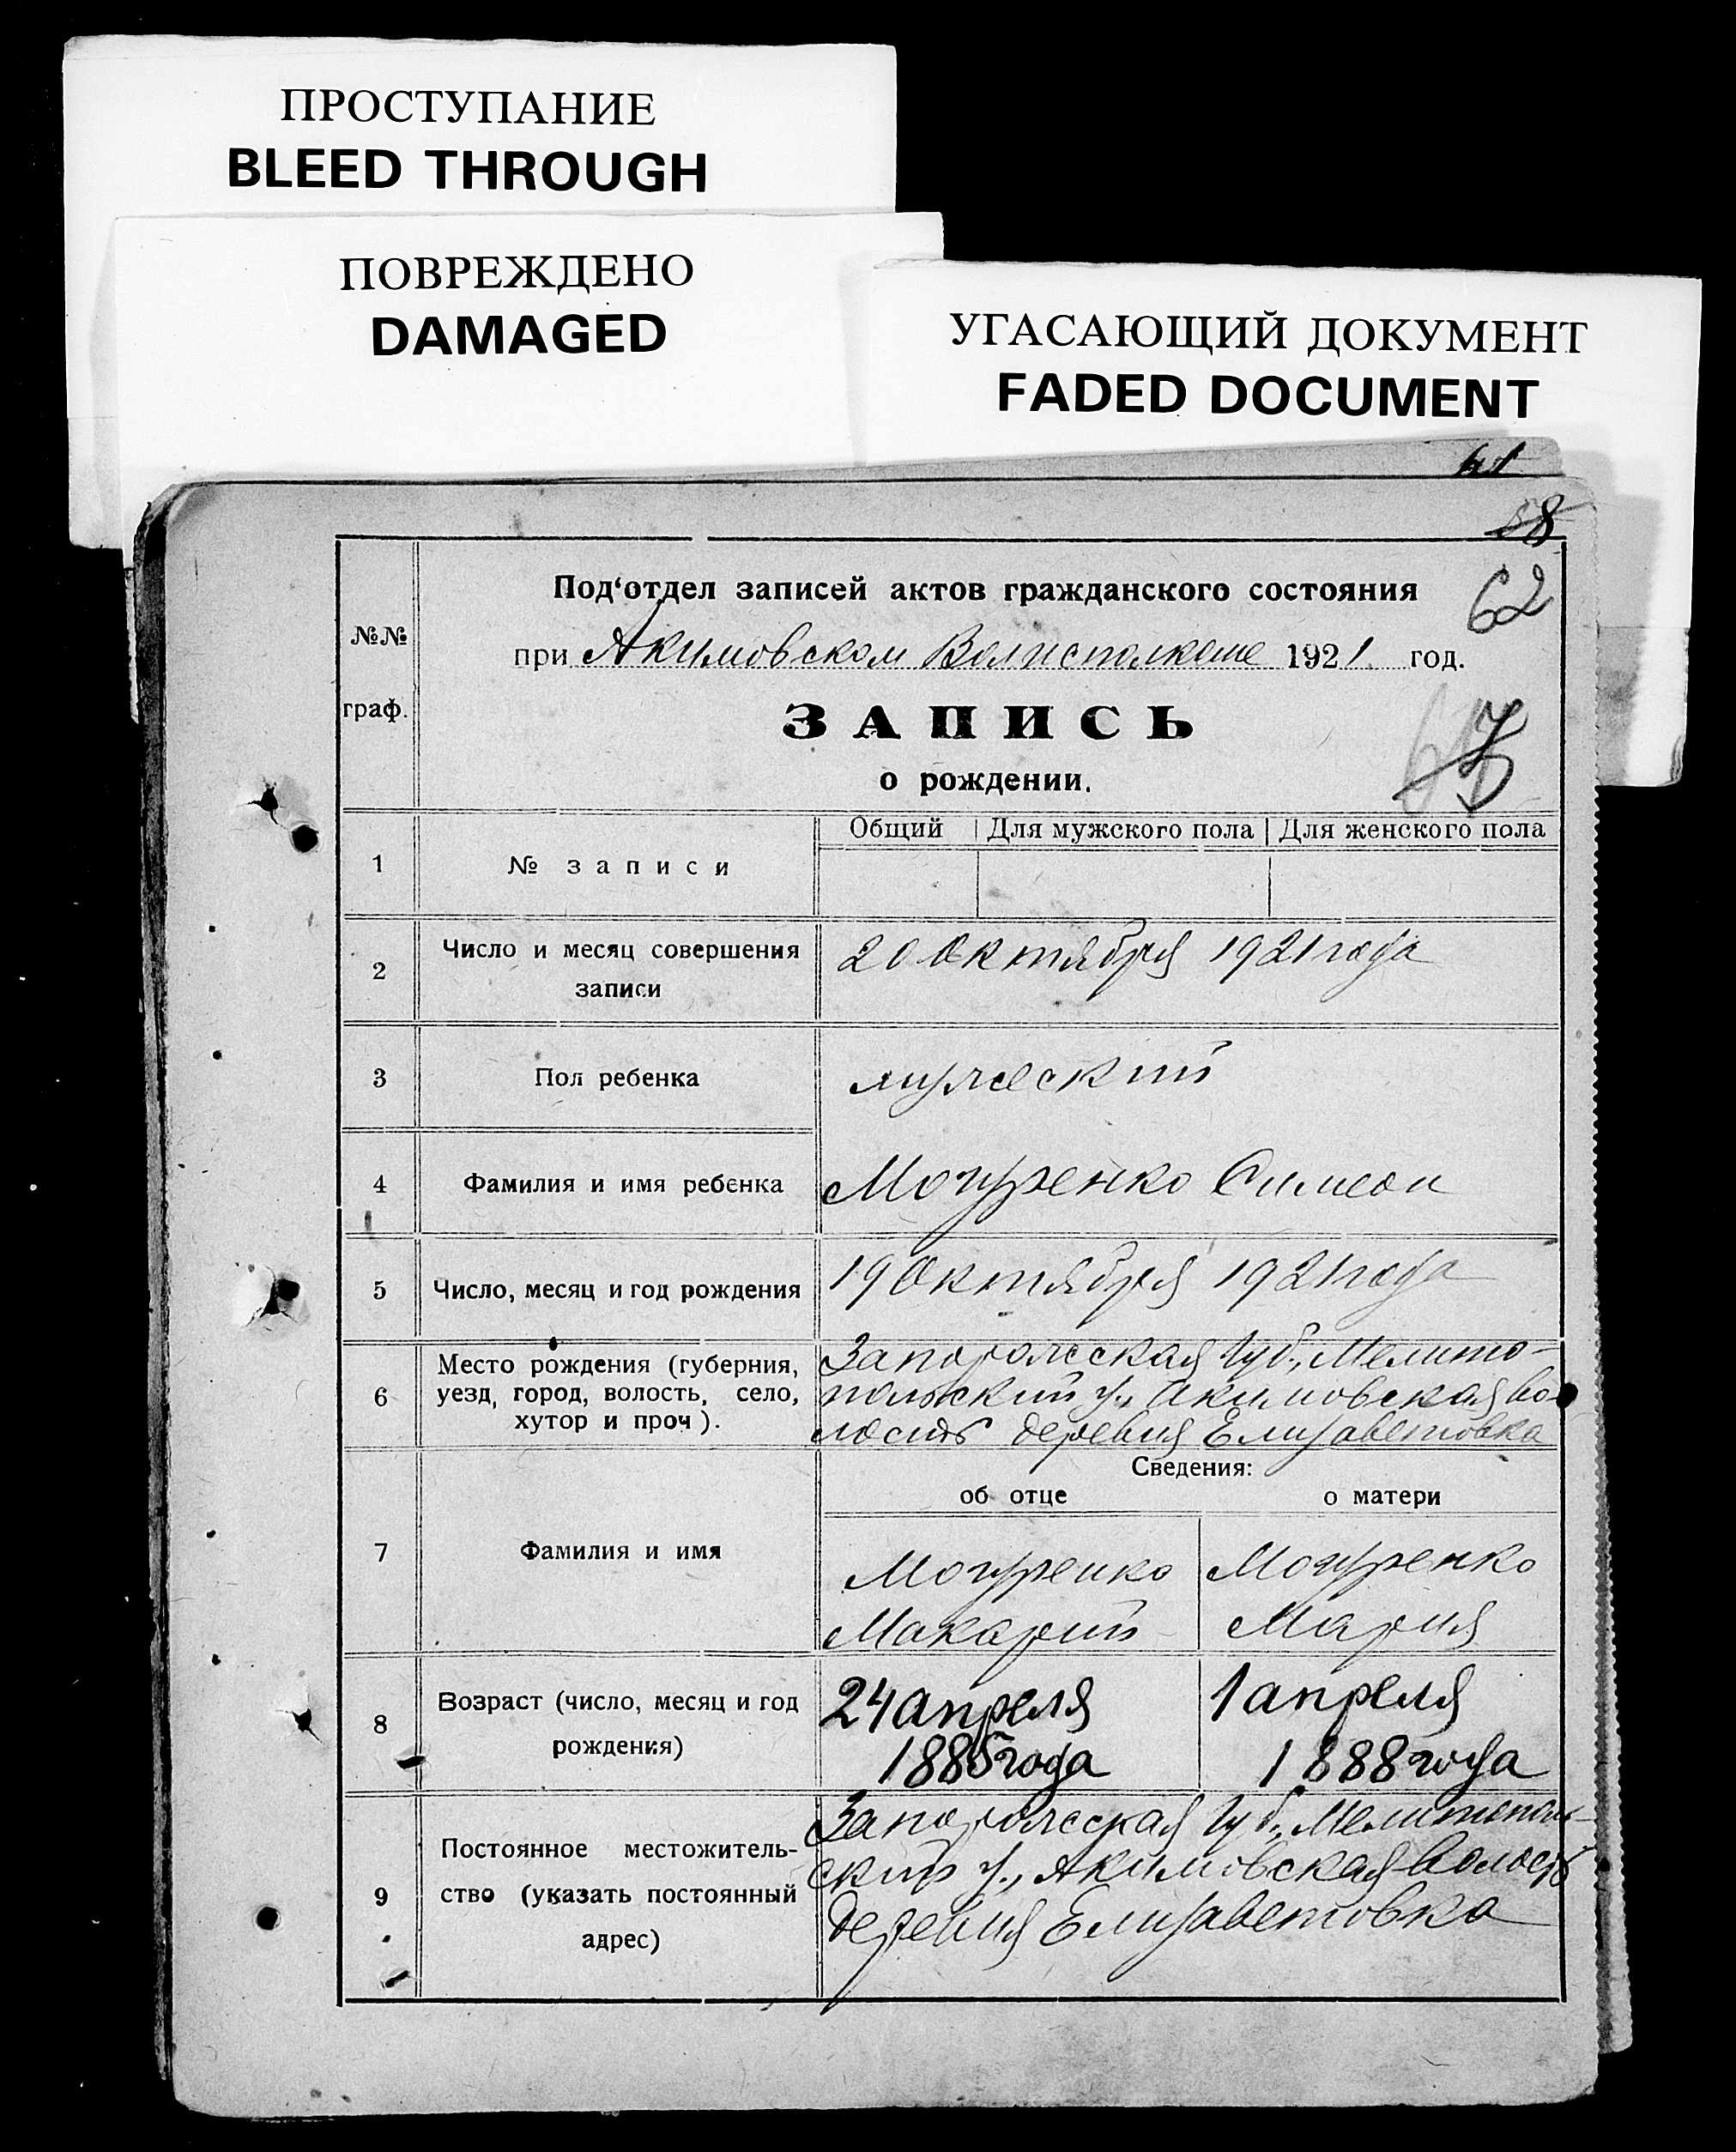 ПРОСТУПАНИЕ
BLEED THROUGH
ПОВРЕЖДЕНО
DAMAGED
УГАСАЮЩИЙ ДОКУМЕНТ
FADED DOCUMENT
61
58
62
№№
граф.
Под‘отдел записей актов гражданского состояния
при Акимовском Волисполкоме 1921 год.
ЗАПИСЬ
о рождении.
1 № записи
Общий Для мужского пола Для женского пола
2 Число и месяц совершения
записи
20 Октября 1921 года
3 Пол ребенка
мужеский
4 Фамилия и имя ребенка
Могуренко Симеон
5 Число, месяц и год рождения
19 Октября 1921 года
6 Место рождения (губерния,
уезд, город, волость, село,
хутор и проч).
Запорожская Губ., Мелито-
польский у., Акимовская во-
лость деревня Елизаветовка
Сведения:
об отце о матери
7 Фамилия и имя
Могуренко Могуренко
Макарий Мария
8 Возраст (число, месяц и год
рождения)
24 апреля 1 апреля
1885 года 1888 года
9 Постоянное местожитель-
ство (указать постоянный
адрес)
Запорожская Губ., Мелитополь-
ский у., Акимовская волость
деревня Елизаветовка